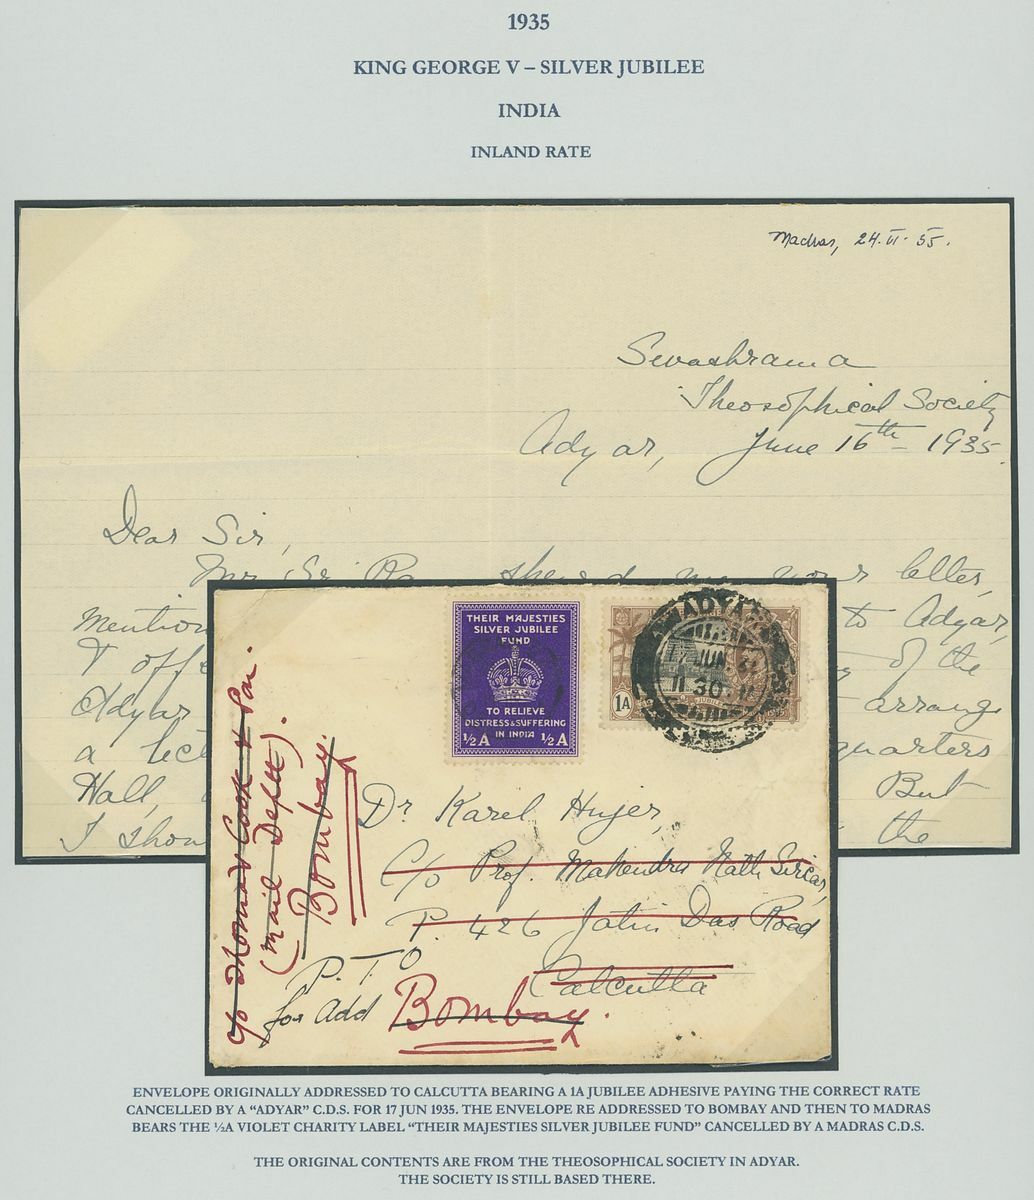 1935
KING GEORGE V – SILVER JUBILEE
INDIA
INLAND RATE
Madras, 24.VI.35.
Sevashrama
Theosophical Society
Adyar, June 16th 1935.
Dear Sir,
Mr. showed me your letter,
mention to Adyar,
I offe of the
Adyar arrange
a lect quarters
Hall, But
I shou the
THEIR MAJESTIES
SILVER JUBILEE
FUND
TO RELIEVE
DISTRESS & SUFFERING
IN INDIA
½A ½A
1A
ADYAR
17 JUN.
11 30
Dr Karel Hujer,
C/o Prof. Mahendra Nath Sircar,
P. 426 Jatin Das Road
Calcutta
Bombay.
P.T.O
for Add
c/o Thomas Cook & Son.
(Mail Deptt)
Bombay.
ENVELOPE ORIGINALLY ADDRESSED TO CALCUTTA BEARING A 1A JUBILEE ADHESIVE PAYING THE CORRECT RATE
CANCELLED BY A “ADYAR” C.D.S. FOR 17 JUN 1935. THE ENVELOPE RE ADDRESSED TO BOMBAY AND THEN TO MADRAS
BEARS THE ½A VIOLET CHARITY LABEL “THEIR MAJESTIES SILVER JUBILEE FUND” CANCELLED BY A MADRAS C.D.S.
THE ORIGINAL CONTENTS ARE FROM THE THEOSOPHICAL SOCIETY IN ADYAR.
THE SOCIETY IS STILL BASED THERE.